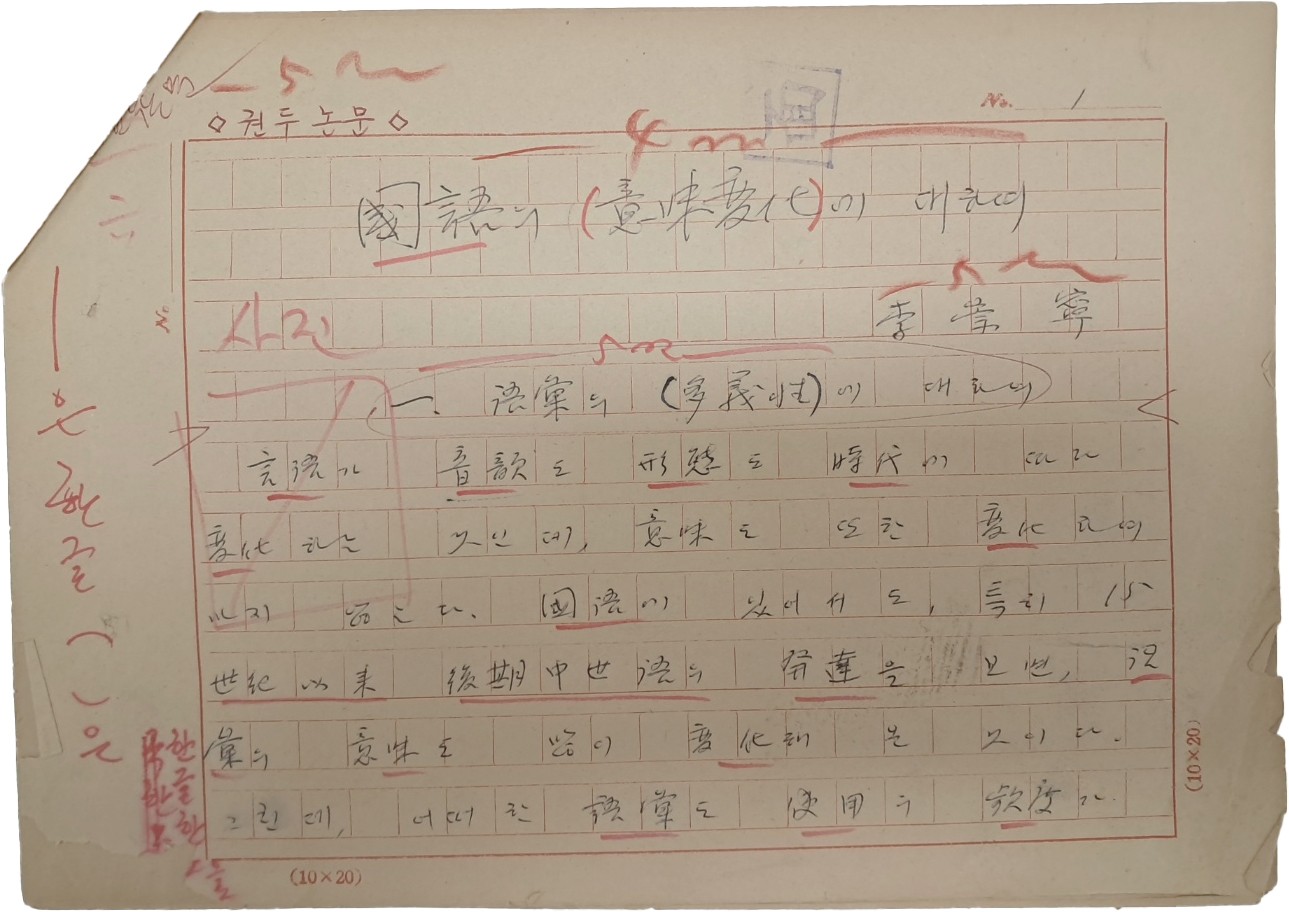 5
◇권두논문◇
No. 1
4
國語의 (意味変化)에 대하여
사진
李崇寧
一. 語彙의 (多義性)에 대하여
言語가 音韻도 形態도 時代에 따라
変化하는 것인데, 意味도 또한 変化하여
마지 않는다. 國語에 있어서도, 특히 15
世紀以来 後期中世語의 発達을 보면, 語
彙의 意味도 많이 変化해 온 것이다.
그런데, 어떠한 語彙도 使用의 頻度가
—은 한글 ( )은
No.
(10×20)
(10×20)